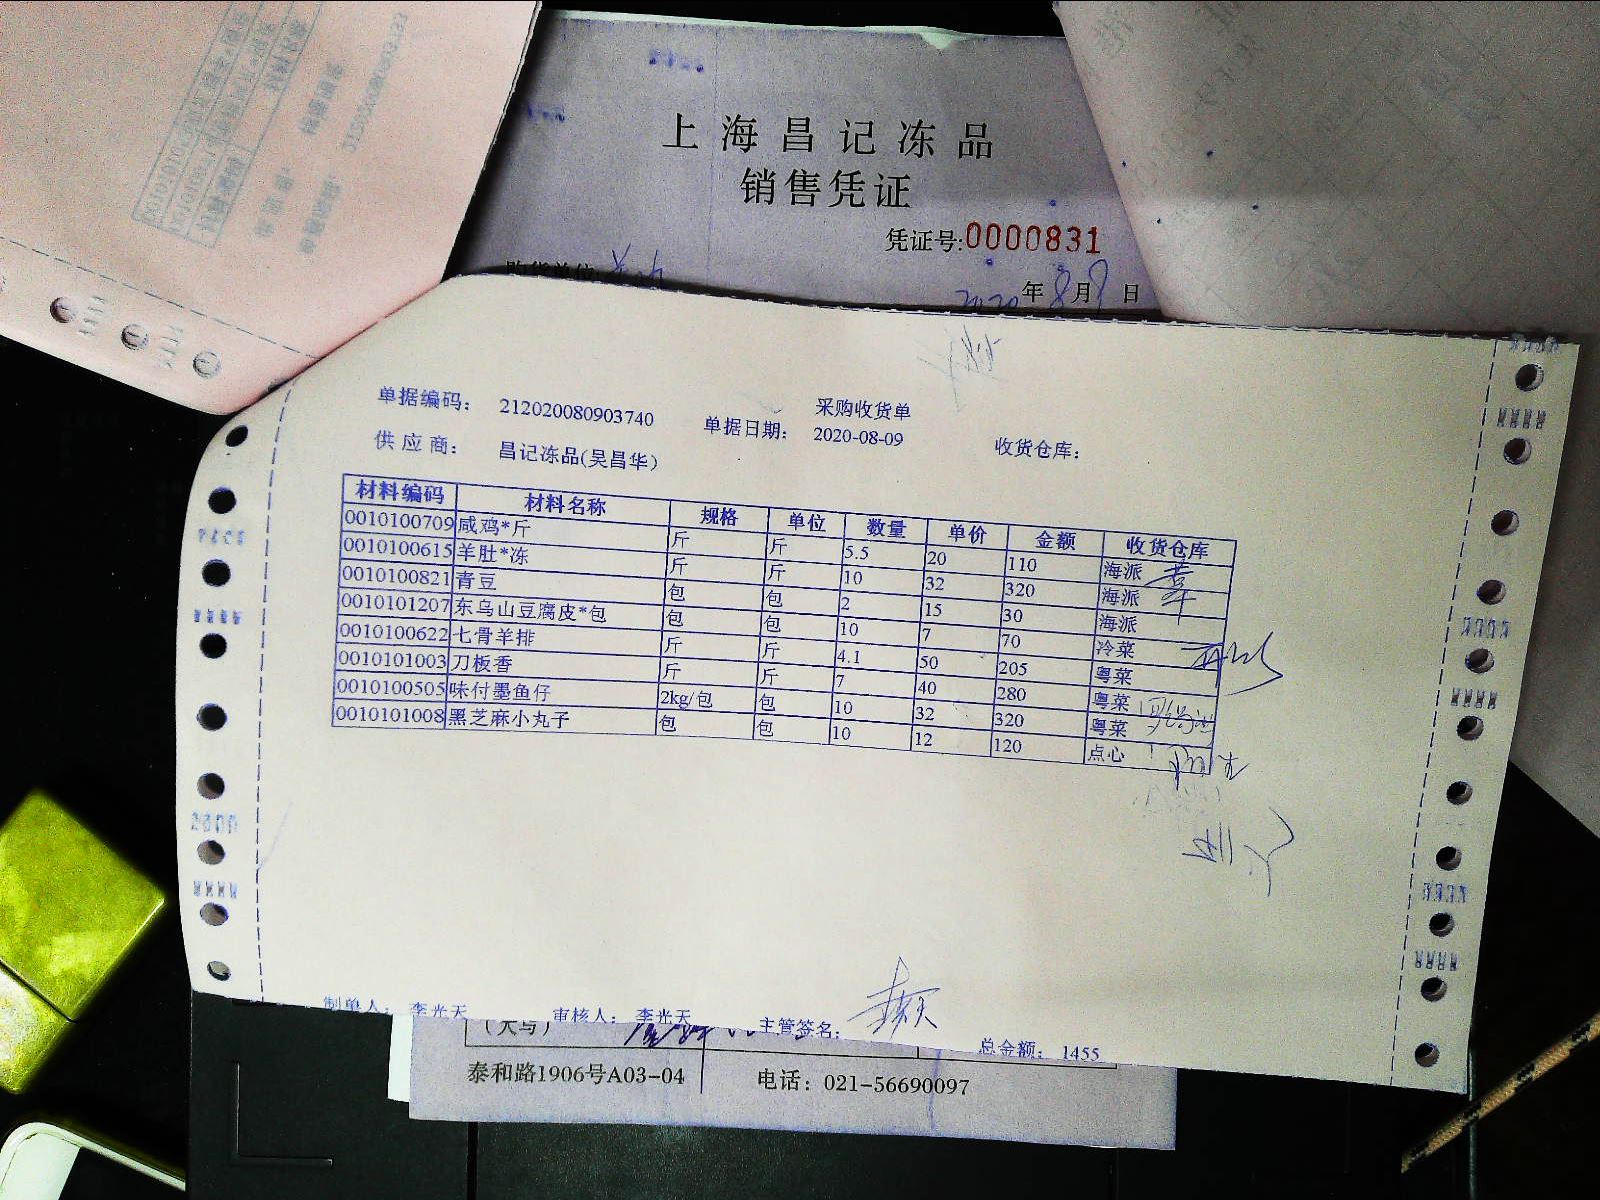 上海昌记冻品
销售凭证
凭证号:0000831
购货单位
2020年8月9日
采购收货单
单据编码: 212020080903740 单据日期: 2020-08-09 收货仓库:
供应商: 昌记冻品(吴昌华)
材料编码 材料名称 规格 单位 数量 单价 金额 收货仓库
0010100709 咸鸡*斤 斤 斤 5.5 20 110 海派
0010100615 羊肚*冻 斤 斤 10 32 320 海派
0010100821 青豆 包 包 2 15 30 海派
0010101207 东乌山豆腐皮*包 包 包 10 7 70 冷菜
0010100622 七骨羊排 斤 斤 4.1 50 205 粤菜
0010101003 刀板香 斤 斤 7 40 280 粤菜
0010100505 味付墨鱼仔 2kg/包 包 10 32 320 粤菜
0010101008 黑芝麻小丸子 包 包 10 12 120 点心
制单人: 李光天 审核人: 李光天 主管签名: 总金额: 1455
(大写)
泰和路1906号A03-04 电话: 021-56690097